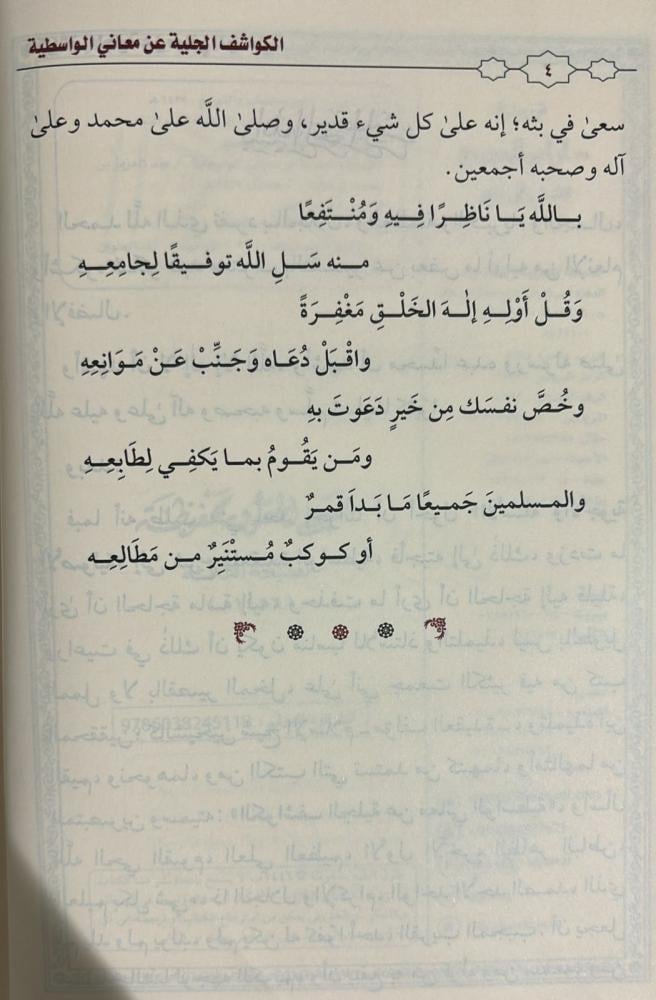 الكواشف الجلية عن معاني الواسطية
٤
سعىٰ في بثه؛ إنه علىٰ كل شيء قدير، وصلىٰ اللَّه علىٰ محمد وعلىٰ
آله وصحبه أجمعين.
بــاللَّه يَــا نَاظِــرًا فِــيهِ وَمُنْــتَفِعًا
مــنه سَــلِ اللَّه توفــيقًا لِجامِعِــهِ
وَقُــلْ أَوْلِــهِ إلٰــهَ الخَلْــقِ مَغْفِــرَةً
واقْبَلْ دُعَــاه وَجَنِّبْ عَــنْ مَــوَانِعِهِ
وخُصَّ نفسَك مِن خَيرٍ دَعَوتَ بهِ
ومَــن يَقُــومُ بمــا يَكفِــي لِطَابِعِــهِ
والمــسلمينَ جَميعًا مَــا بَــداَ قمرٌ
أو كــوكبٌ مُــستْنَيِرٌ مــن مَطَالِعِــه